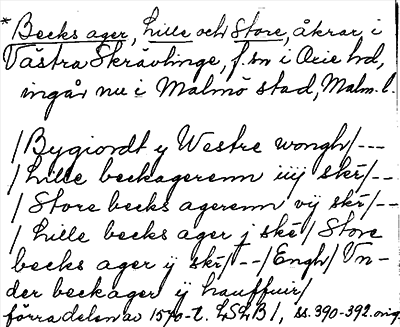 *Becks ager, Lille och Store, åkrar i
Västra Skrävlinge, f.sn i Oxie hd,
ingår nu i Malmö stad, Malm. l.
/Bygiordt y Westre wongh/---
/Lille beckagerenn iiij skě/--
/Store becks agerenn vij skě/--
/Lille becks ager j skě/Store
becks ager ij skě/--/Engh/Vn-
der beckager ij hauffuir/
förra delen av 1570-t. LSLB1, ss.390-392.orig.